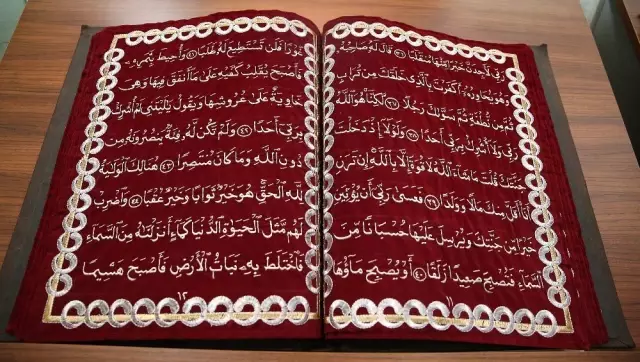 رَبِّي لَأَجِدَنَّ خَيْرًا مِّنْهَا مُنقَلَبًا ٣٦ قَالَ لَهُ صَاحِبُهُ
وَهُوَ يُحَاوِرُهُ أَكَفَرْتَ بِالَّذِي خَلَقَكَ مِن تُرَابٍ
ثُمَّ مِن نُّطْفَةٍ ثُمَّ سَوَّىٰكَ رَجُلًا ٣٧ لَّٰكِنَّا هُوَ اللَّهُ
رَبِّي وَلَا أُشْرِكُ بِرَبِّي أَحَدًا ٣٨ وَلَوْلَا إِذْ دَخَلْتَ
جَنَّتَكَ قُلْتَ مَا شَاءَ اللَّهُ لَا قُوَّةَ إِلَّا بِاللَّهِ إِن تَرَنِ
أَنَا أَقَلَّ مِنكَ مَالًا وَوَلَدًا ٣٩ فَعَسَىٰ رَبِّي أَن يُؤْتِيَنِ
خَيْرًا مِّن جَنَّتِكَ وَيُرْسِلَ عَلَيْهَا حُسْبَانًا مِّنَ
السَّمَاءِ فَتُصْبِحَ صَعِيدًا زَلَقًا ٤٠ أَوْ يُصْبِحَ مَاؤُهَا
١١
غَوْرًا فَلَن تَسْتَطِيعَ لَهُ طَلَبًا ٤١ وَأُحِيطَ بِثَمَرِهِ
فَأَصْبَحَ يُقَلِّبُ كَفَّيْهِ عَلَىٰ مَا أَنفَقَ فِيهَا وَهِيَ
خَاوِيَةٌ عَلَىٰ عُرُوشِهَا وَيَقُولُ يَا لَيْتَنِي لَمْ أُشْرِكْ
بِرَبِّي أَحَدًا ٤٢ وَلَمْ تَكُن لَّهُ فِئَةٌ يَنصُرُونَهُ مِن
دُونِ اللَّهِ وَمَا كَانَ مُنتَصِرًا ٤٣ هُنَالِكَ الْوَلَايَةُ
لِلَّهِ الْحَقِّ هُوَ خَيْرٌ ثَوَابًا وَخَيْرٌ عُقْبًا ٤٤ وَاضْرِبْ
لَهُم مَّثَلَ الْحَيَوٰةِ الدُّنْيَا كَمَاءٍ أَنزَلْنَاهُ مِنَ السَّمَاءِ
فَاخْتَلَطَ بِهِ نَبَاتُ الْأَرْضِ فَأَصْبَحَ هَشِيمًا
١٢